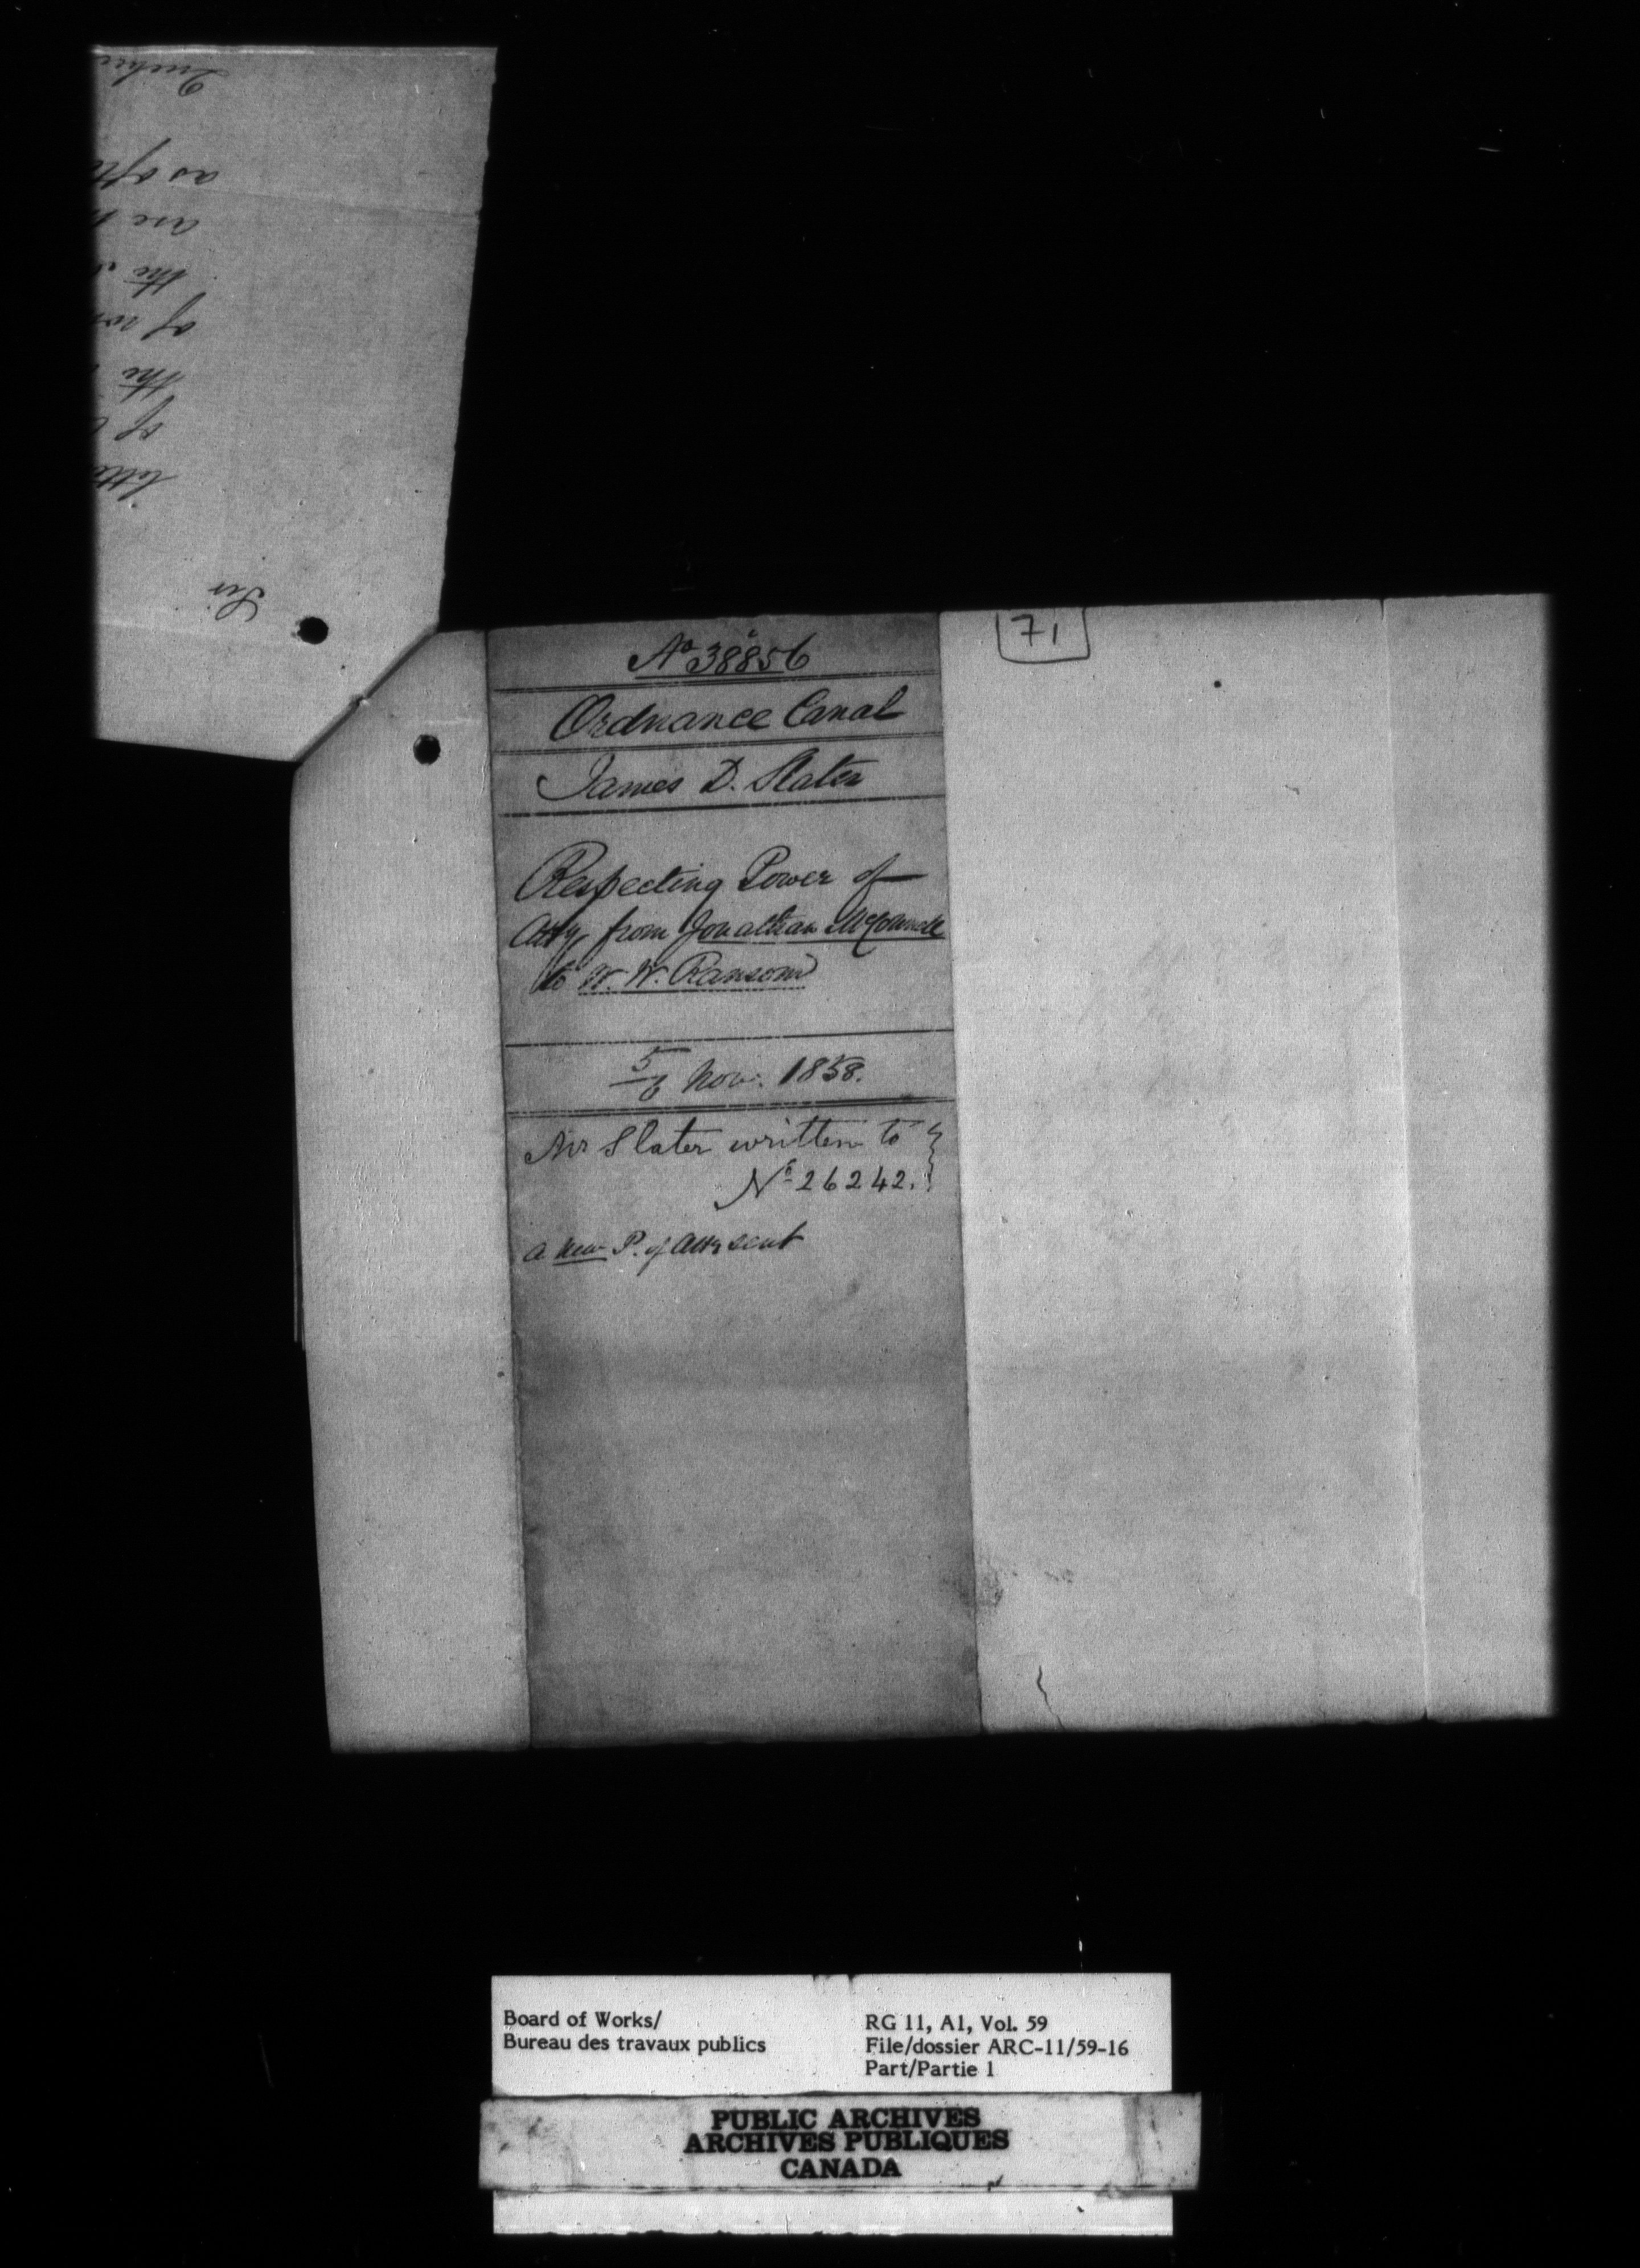 Sir
lette
of
the
of
the
are
as
71
No 38856
Ordnance Canal
James D. Slater
Respecting Power of
Atty from Jonathan McConnell
to W. W. Ransom
5/6 Nov. 1858.
Mr Slater written to
No 26242.
a new P. of Atty sent
Board of Works/
Bureau des travaux publics
RG 11, A1, Vol. 59
File/dossier ARC-11/59-16
Part/Partie 1
PUBLIC ARCHIVES
ARCHIVES PUBLIQUES
CANADA